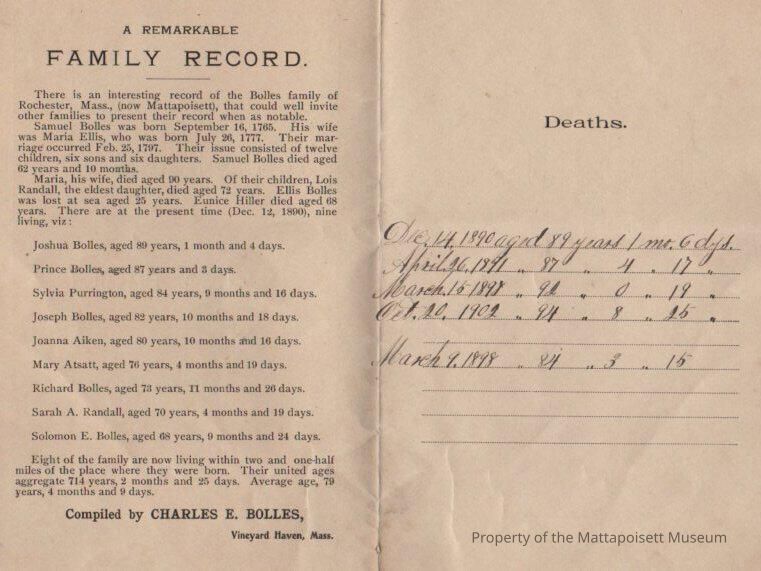 A REMARKABLE
FAMILY RECORD.
There is an interesting record of the Bolles family of
Rochester, Mass., (now Mattapoisett), that could well invite
other families to present their record when as notable.
Samuel Bolles was born September 16, 1765. His wife
was Maria Ellis, who was born July 26, 1777. Their mar-
riage occurred Feb. 25, 1797. Their issue consisted of twelve
children, six sons and six daughters. Samuel Bolles died aged
62 years and 10 months.
Maria, his wife, died aged 90 years. Of their children, Lois
Randall, the eldest daughter, died aged 72 years. Ellis Bolles
was lost at sea aged 25 years. Eunice Hiller died aged 68
years. There are at the present time (Dec. 12, 1890), nine
living, viz:
Joshua Bolles, aged 89 years, 1 month and 4 days.
Prince Bolles, aged 87 years and 3 days.
Sylvia Purrington, aged 84 years, 9 months and 16 days.
Joseph Bolles, aged 82 years, 10 months and 18 days.
Joanna Aiken, aged 80 years, 10 months and 16 days.
Mary Atsatt, aged 76 years, 4 months and 19 days.
Richard Bolles, aged 73 years, 11 months and 26 days.
Sarah A. Randall, aged 70 years, 4 months and 19 days.
Solomon E. Bolles, aged 68 years, 9 months and 24 days.
Eight of the family are now living within two and one-half
miles of the place where they were born. Their united ages
aggregate 714 years, 2 months and 25 days. Average age, 79
years, 4 months and 9 days.
Compiled by CHARLES E. BOLLES,
Vineyard Haven, Mass.
Deaths.
Dec. 14, 1890 aged 89 years 1 mo. 6 dys.
April 26, 1891 „ 87 „ 4 „ 17 „
March 15 1898 „ 92 „ 0 „ 19 „
Oct. 20, 1902 „ 94 „ 8 „ 25 „
March 9, 1898 „ 84 „ 3 „ 15
Property of the Mattapoisett Museum